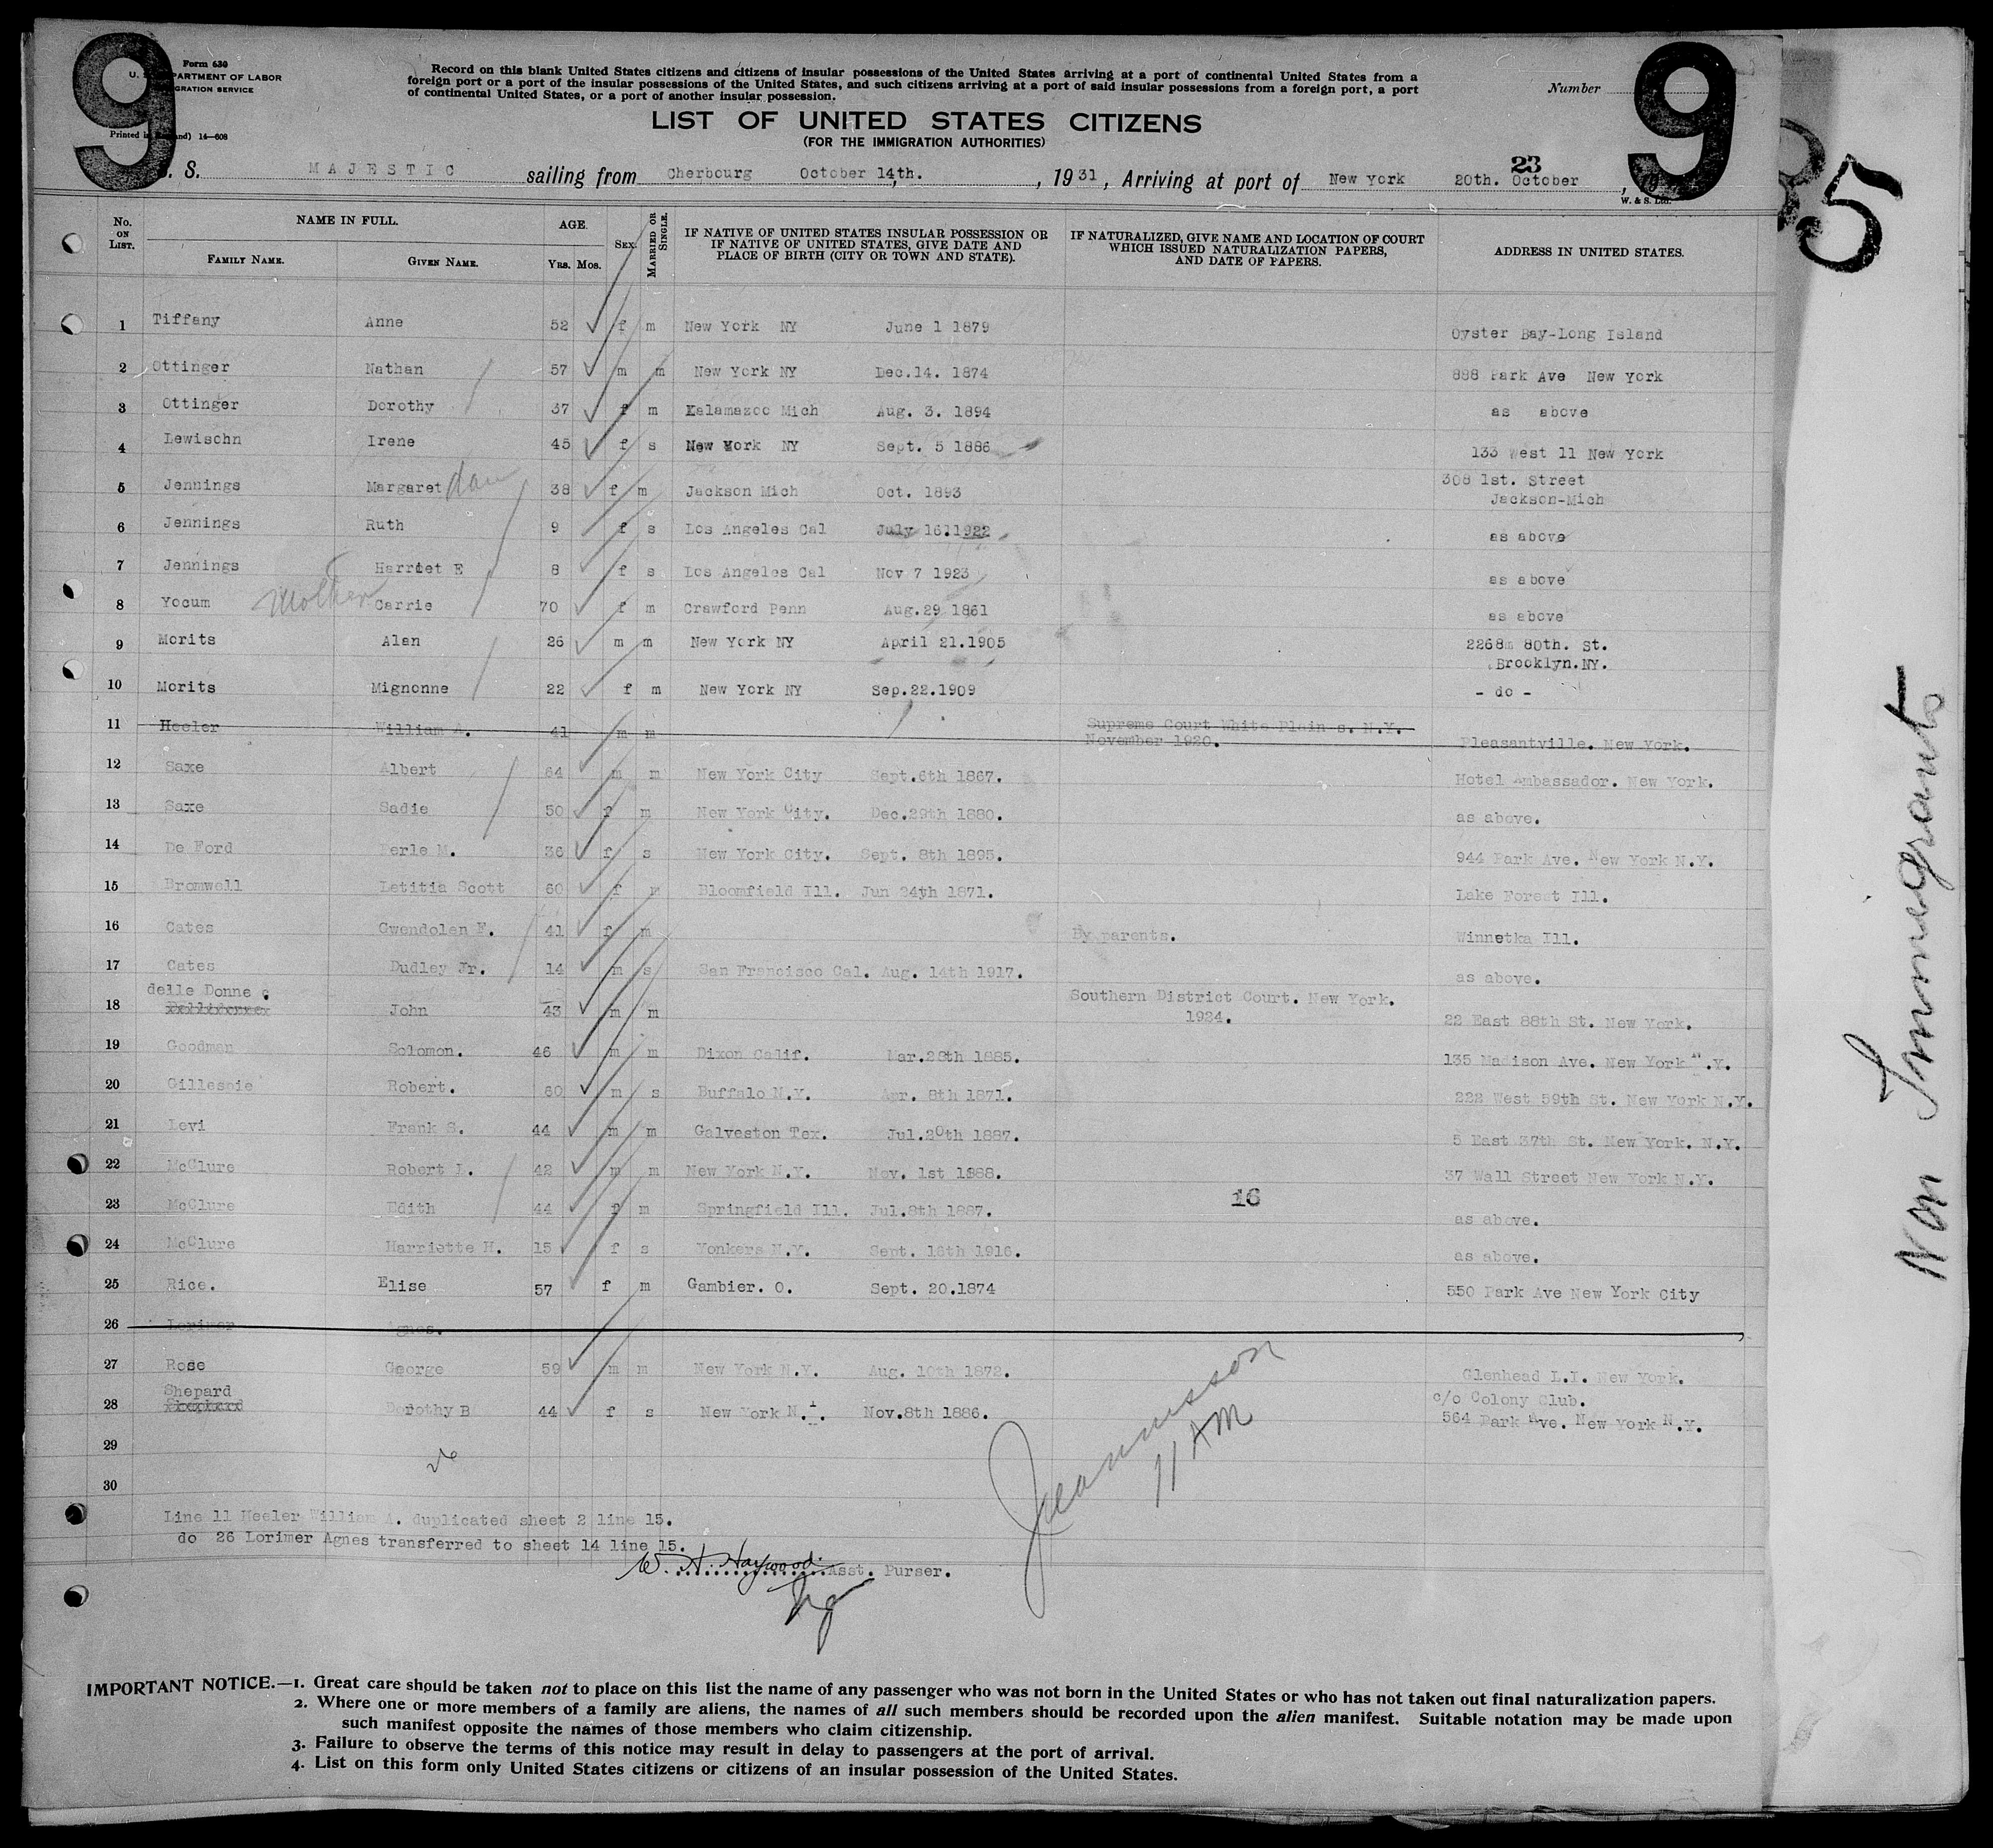 9
9
Form 630
U. S. DEPARTMENT OF LABOR
IMMIGRATION SERVICE
Printed in England) 14—608
Record on this blank United States citizens and citizens of insular possessions of the United States arriving at a port of continental United States from a
foreign port or a port of the insular possessions of the United States, and such citizens arriving at a port of said insular possessions from a foreign port, a port
of continental United States, or a port of another insular possession.
Number
LIST OF UNITED STATES CITIZENS
(FOR THE IMMIGRATION AUTHORITIES)
S. S. MAJESTIC sailing from Cherbourg October 14,th. , 1931, Arriving at port of New York 20th. October 23
W. & S. Ltd.
No. ON LIST. NAME IN FULL. AGE. SEX. MARRIED OR SINGLE. IF NATIVE OF UNITED STATES INSULAR POSSESSION OR IF NATIVE OF UNITED STATES, GIVE DATE AND PLACE OF BIRTH (CITY OR TOWN AND STATE). IF NATURALIZED, GIVE NAME AND LOCATION OF COURT WHICH ISSUED NATURALIZATION PAPERS, AND DATE OF PAPERS. ADDRESS IN UNITED STATES.
FAMILY NAME. GIVEN NAME. YRS. MOS.
1 Tiffany Anne 52 f m New York NY June 1 1879 Oyster Bay-Long Island
2 Ottinger Nathan 57 m m New York NY Dec.14. 1874 888 Park Ave New York
3 Ottinger Dorothy 37 f m Kalamazoo Mich Aug. 3. 1894 as above
4 Lewisohn Irene 45 f s New York NY Sept. 5 1886 133 West 11 New York
5 Jennings Margaret dau 38 f m Jackson Mich Oct. 1893 308 1st. Street
Jackson-Mich
6 Jennings Ruth 9 f s Los Angeles Cal July 16.1922 as above
7 Jennings Harriet E 8 f s Los Angeles Cal Nov 7 1923 as above
8 Yocum Mother Carrie 70 f m Crawford Penn Aug.29 1861 as above
9 Morits Alan 26 m m New York NY April 21.1905 2268m 80th. St.
Brooklyn.NY.
10 Morits Mignonne 22 f m New York NY Sep.22.1909 - do -
11 Heeler William A. 41 m m Supreme Court White Plain s. N.Y.
November 1920. Pleasantville. New York.
12 Saxe Albert 64 m m New York City Sept.6th 1867. Hotel Ambassador. New York.
13 Saxe Sadie 50 f m New York City. Dec.29th 1880. as above.
14 De Ford Perle M. 36 f s New York City. Sept. 8th 1895. 944 Park Ave. New York N.Y.
15 Bromwell Letitia Scott 60 f m Bloomfield Ill. Jun 24th 1871. Lake Forest Ill.
16 Cates Gwendolen F. 41 f m By parents. Winnetka Ill.
17 Cates Dudley Jr. 14 m s San Francisco Cal. Aug. 14th 1917. as above.
delle Donne
18 John 43 m m Southern District Court. New York.
1924. 22 East 88th St. New York.
19 Goodman Solomon. 46 m m Dixon Calif. Mar.28th 1885. 135 Madison Ave. New York N.Y.
20 Gillespie Robert. 60 m s Buffalo N.Y. Apr. 8th 1871. 222 West 59th St. New York N.Y.
21 Levi Frank S. 44 m m Galveston Tex. Jul.20th 1887. 5 East 37th St. New York. N.Y.
22 McClure Robert I. 42 m m New York N.Y. Nov. 1st 1888. 37 Wall Street New York N.Y.
23 McClure Edith 44 f m Springfield Ill. Jul.8th 1887. 16 as above.
24 McClure Harriette H. 15 f s Yonkers N.Y. Sept. 16th 1916. as above.
25 Rice. Elise 57 f m Gambier. O. Sept. 20.1874 550 Park Ave New York City
26 Lorimer Agnes.
27 Rose George 59 m m New York N.Y. Aug. 10th 1872. Glenhead L.I. New York.
Shepard c/o Colony Club.
28 Shephard Dorothy B 44 f s New York N.Y. Nov.8th 1886. 564 Park Ave. New York N.Y.
29
30
11 AM
Line 11 Heeler William A. duplicated sheet 2 line 15.
do 26 Lorimer Agnes transferred to sheet 14 line 15.
W. H. Haywood. Asst. Purser.
IMPORTANT NOTICE.—1. Great care should be taken not to place on this list the name of any passenger who was not born in the United States or who has not taken out final naturalization papers.
2. Where one or more members of a family are aliens, the names of all such members should be recorded upon the alien manifest. Suitable notation may be made upon
such manifest opposite the names of those members who claim citizenship.
3. Failure to observe the terms of this notice may result in delay to passengers at the port of arrival.
4. List on this form only United States citizens or citizens of an insular possession of the United States.
5
Non Immigrants